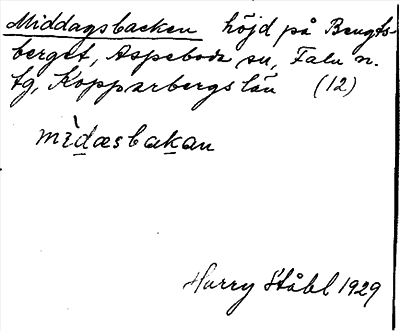 Middagsbacken höjd på Bengts-
berget, Aspeboda sn, Falu n.
tg, Kopparbergs län (12)
mìdæsbakan
Harry Ståhl 1929